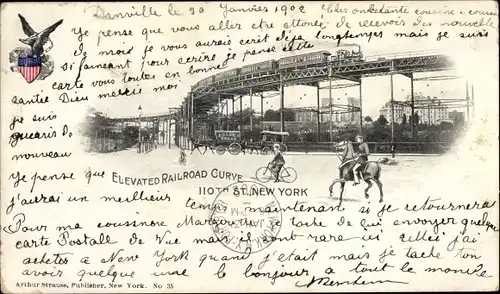 Danville le 30 Janvier 1902 Cher oncle tante cousine
Je pense que vous aller etre ettonée de recevoir des nouvelle
de moi je vous aurais ecrit deja longtemps mais je suis
si faineant pour ecrire je pense que cette
carte vous toutes en bonne
santée Dieu merci moi
je suis
gueris
nouveau
Je pense que
j'aurai un meilleur temps maintenant si je retournera
Pour ma cousine Marguerite tache de envoyer quelque
carte Postale de Vue mais il sont rare ici celle j'ai
achetes a New York quand j'etait mais je tache ton
avoir quelque une le bonjour a tout le monde
ELEVATED RAILROAD CURVE
110TH ST. NEW YORK
Arthur Strauss, Publisher, New York. No 35